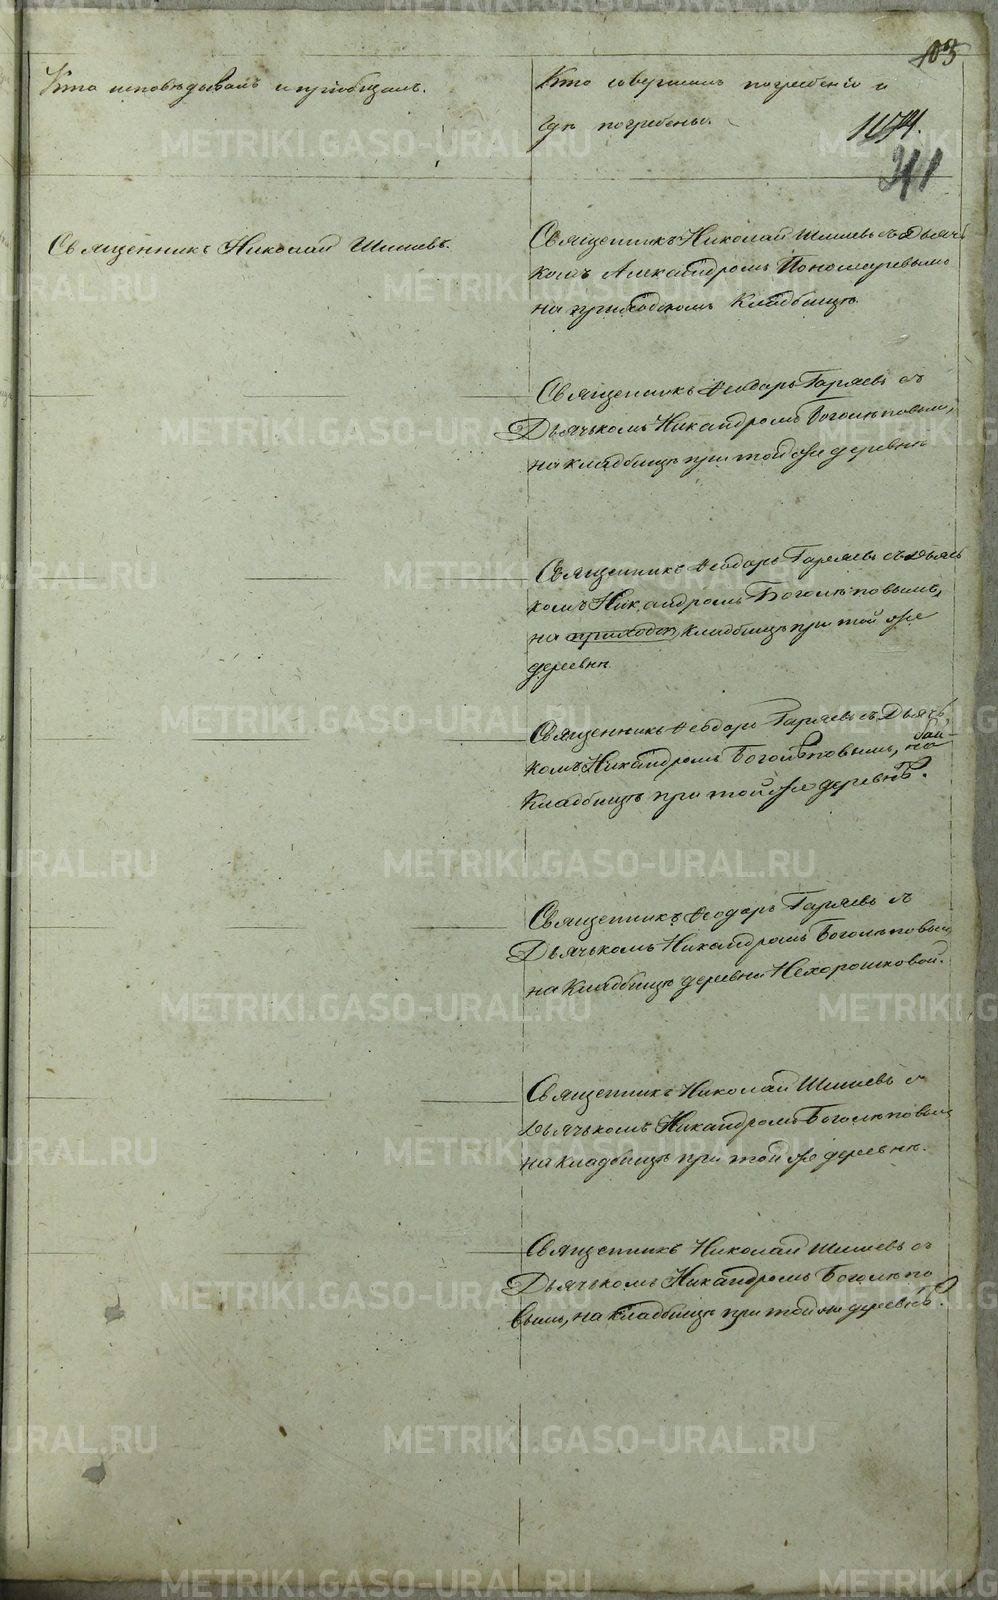 103
Кто исповѣдывалъ и приобщалъ.
Кто совершалъ погребеніе и
гдѣ погребены.
311
Священникъ Николай Шишевъ.
Священникъ Николай Шишевъ съ Дьяч
комъ Александромъ Пономаревымъ
на приходскомъ Кладбищѣ.
Священникъ Ѳеодоръ Гаряевъ съ
Дьячькомъ Никандромъ Боголѣповымъ,
на кладбищѣ при той же деревнѣ
Священникъ Ѳеодоръ Гаряевъ съ Дьячь
комъ Никандромъ Боголѣповымъ,
на приходск кладбищѣ при той же
деревнѣ.
Священникъ Ѳеодоръ Гаряевъ съ Дьячь
комъ Никандромъ Боголѣповымъ, на
Кладбищѣ при той же деревнѣ.
Священникъ Ѳеодоръ Гаряевъ съ
Дьячькомъ Никандромъ Боголѣповым
на Кладбищѣ деревни Нехорошковой.
Священникъ Николай Шишевъ съ
Дьячькомъ Никандромъ Боголѣповым
на кладбищѣ при той же деревнѣ.
Священникъ Николай Шишевъ съ
Дьячькомъ Никандромъ Боголѣпо
вымъ, на кладбищѣ при той же деревнѣ.
METRIKI.GASO-URAL.RU